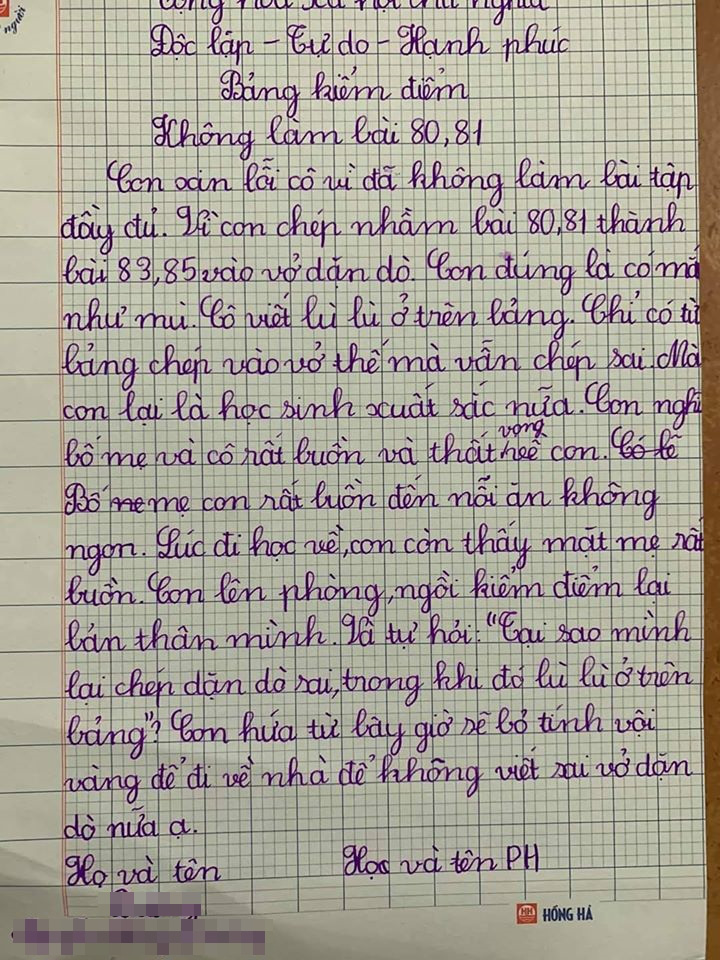 người
Cộng hòa xã hội chủ nghĩa
Độc lập - Tự do - Hạnh phúc
Bảng kiểm điểm
Không làm bài 80,81
Con xin lỗi cô vì đã không làm bài tập
đầy đủ. Vì con chép nhầm bài 80,81 thành
bài 83,85 vào vở dặn dò. Con đúng là có mắ
như mù. Cô viết lù lù ở trên bảng. Chỉ có từ
bảng chép vào vở thế mà vẫn chép sai. Mà
con lại là học sinh xuất sắc nữa. Con nghĩ
vọng
bố mẹ và cô rất buồn và thất con. Có lẽ
Bố me mẹ con rất buồn đến nỗi ăn không
ngon. Lúc đi học về, con còn thấy mặt mẹ rất
buồn. Con lên phòng, ngồi kiểm điểm lại
bản thân mình. Và tự hỏi: "Tại sao mình
lại chép dặn dò sai, trong khi đó lù lù ở trên
bảng"? Con hứa từ bây giờ sẽ bỏ tính vội
vàng để đi về nhà để không viết sai vở dặn
dò nữa ạ.
Họ và tên Học và tên PH
HH HỒNG HÀ